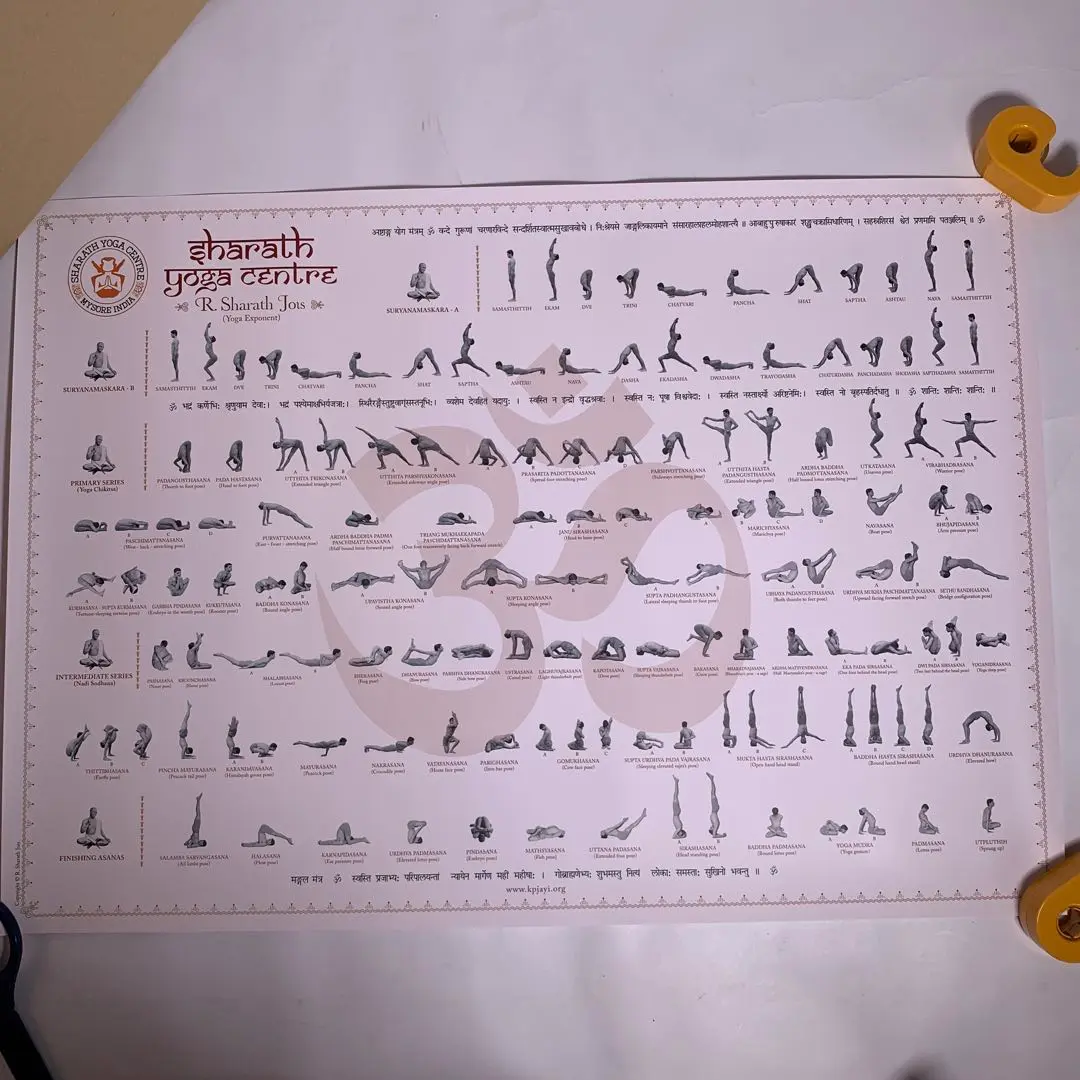 SHARATH YOGA CENTRE
MYSORE INDIA
sharath
yoga centre
R. Sharath Jois
(Yoga Exponent)
अष्टाङ्ग योग मंत्रम् ॐ वन्दे गुरूणां चरणारविन्दे सन्दर्शितस्वात्मसुखावबोधे । निःश्रेयसे जाङ्गलिकायमाने संसारहालाहलमोहशान्त्यै ॥ आबाहुपुरुषाकारं शङ्खचक्रासिधारिणम् । सहस्रशिरसं श्वेतं प्रणमामि पतञ्जलिम् ॥ ॐ
SURYANAMASKARA - A
SAMASTHITTIH EKAM DVE TRINI CHATVARI PANCHA SHAT SAPTHA ASHTAU NAVA SAMASTHITTIH
SURYANAMASKARA - B
SAMASTHITTIH EKAM DVE TRINI CHATVARI PANCHA SHAT SAPTHA ASHTAU NAVA DASHA EKADASHA DWADASHA TRAYODASHA CHATURDASHA PANCHADASHA SHODASHA SAPTHADASHA SAMASTHITTIH
ॐ भद्रं कर्णेभिः श्रृणुयाम देवाः । भद्रं पश्येमाक्षभिर्यजत्राः । स्थिरैरङ्गैस्तुष्टुवाग्ंसस्तनूभिः । व्यशेम देवहितं यदायुः । स्वस्ति न इन्द्रो वृद्धश्रवाः । स्वस्ति नः पूषा विश्ववेदाः । स्वस्ति नस्तार्क्ष्यो अरिष्टनेमिः । स्वस्ति नो बृहस्पतिर्दधातु ॥ ॐ शान्तिः शान्तिः शान्तिः ॥
PRIMARY SERIES
(Yoga Chikitsa)
PADANGUSTHASANA PADA HASTASANA UTTHITA TRIKONASANA UTTHITA PARSHVAKONASANA PRASARITA PADOTTANASANA PARSHVOTTANASANA UTTHITA HASTA PADANGUSTHASANA ARDHA BADDHA PADMOTTANASANA UTKATASANA VIRABHADRASANA
(Thumb to foot pose) (Hand to foot pose) (Extended triangle pose) (Extended sideways angle pose) (Spread foot stretching pose) (Sideways stretching pose) (Extended triangle pose) (Half bound lotus stretching pose) (Warrior pose)
PASCHIMATTANASANA PURVATTANASANA ARDHA BADDHA PADMA PASCHIMATTANASANA TRIANG MUKHAEKAPADA PASCHIMATTANASANA JANU SIRASHASANA MARICHYASANA NAVASANA BHUJAPIDASANA
(West - back - stretching pose) (East - front - stretching pose) (Half bound lotus forward pose) (One foot transversely facing back forward stretch) (Head to knee pose) (Marichya pose) (Boat pose) (Arm pressure pose)
KURMASANA SUPTA KURMASANA GARBHA PINDASANA KUKKUTASANA BADDHA KONASANA UPAVISTHA KONASANA SUPTA KONASANA SUPTA PADHANGUSTASANA UBHAYA PADANGUSTHASANA URDHVA MUKHA PASCHIMATTASANA SETHU BANDHASANA
(Tortoise-sleeping tortoise pose) (Embryo in the womb pose) (Rooster pose) (Bound angle pose) (Seated angle pose) (Sleeping angle pose) (Lateral sleeping thumb to foot pose) (Both thumbs to feet pose) (Upward facing forward stretch pose) (Bridge configuration pose)
INTERMEDIATE SERIES
(Nadi Sodhana)
PASASANA KROUNCHASANA SHALABHASANA BHEKASANA DHANURASANA PARSHVA DHANURASANA USTRASANA LAGHUVAJRASANA KAPOTASANA SUPTA VAJRASANA BAKASANA BHARADVAJASANA ARDHA MATSYENDRASANA EKA PADA SIRSASANA DWI PADA SIRSASANA YOGANIDRASANA
(Noose pose) (Heron pose) (Locust pose) (Frog pose) (Bow pose) (Side bow pose) (Camel pose) (Light thunderbolt pose) (Dove pose) (Sleeping thunderbolt pose) (Crane pose) (One foot behind the head pose) (Two feet behind the head pose) (Yogic sleep pose)
TITTIBHASANA PINCHA MAYURASANA KARANDAVASANA MAYURASANA NAKRASANA VATAYANASANA PARIGHASANA GOMUKHASANA SUPTA URDHVA PADA VAJRASANA MUKTA HASTA SIRASHASANA BADDHA HASTA SIRASHASANA URDHVA DHANURASANA
(Firefly pose) (Peacock tail pose) (Himalayan goose pose) (Peacock pose) (Crocodile pose) (Horse face pose) (Iron bar pose) (Cow face pose) (Sleeping elevated vajra pose) (Open hand head stand) (Bound hand head stand) (Elevated bow)
FINISHING ASANAS
SALAMBA SARVANGASANA HALASANA KARNAPIDASANA URDHVA PADMASANA PINDASANA MATHSYASANA UTTANA PADASANA SIRASHASANA BADDHA PADMASANA YOGA MUDRA PADMASANA UTPLUTHIH
(All Limbs pose) (Plow pose) (Ear pressure pose) (Elevated lotus pose) (Embryo pose) (Fish pose) (Extended foot pose) (Head standing pose) (Bound lotus pose) (Yoga gesture) (Lotus pose) (Sprung up)
मङ्गल मंत्र ॐ स्वस्ति प्रजाभ्यः परिपालयन्तां न्यायेन मार्गेण महीं महीशाः । गोब्राह्मणेभ्यः शुभमस्तु नित्यं लोकाः समस्ताः सुखिनो भवन्तु ॥ ॐ
www.kpjayi.org
Copyright © R. Sharath Jois